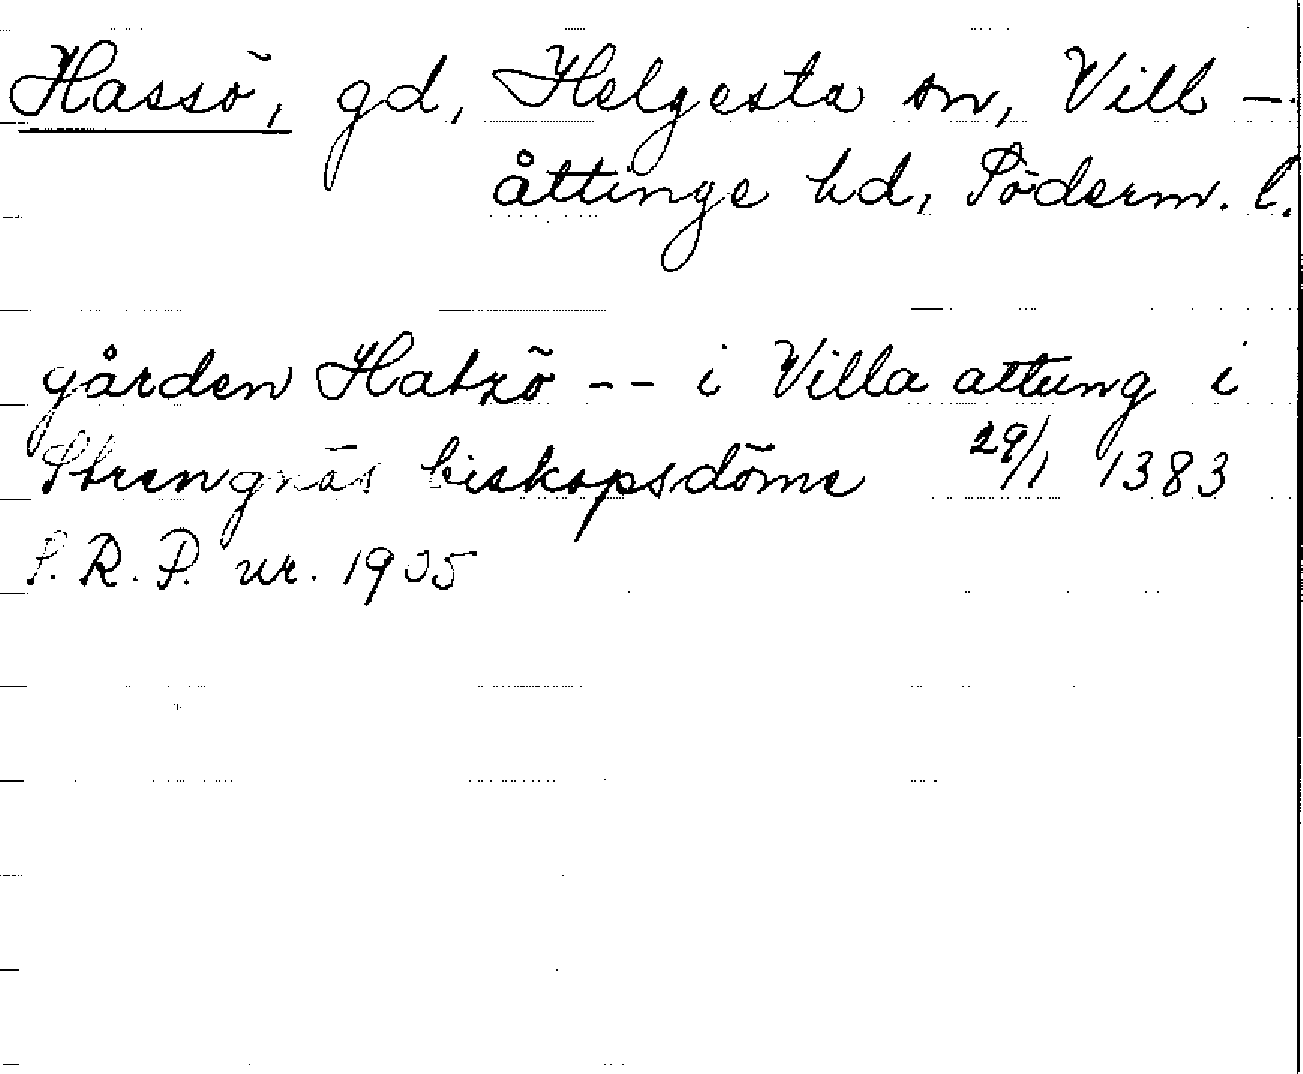 Hassö, gd, Helgesta sn, Vill-
åttinge hd, Söderm. l.
gården Hatzö -- i Villa attung i
Strengnäs biskopsdöme 29/1 1383
S. R. P. nr. 1935